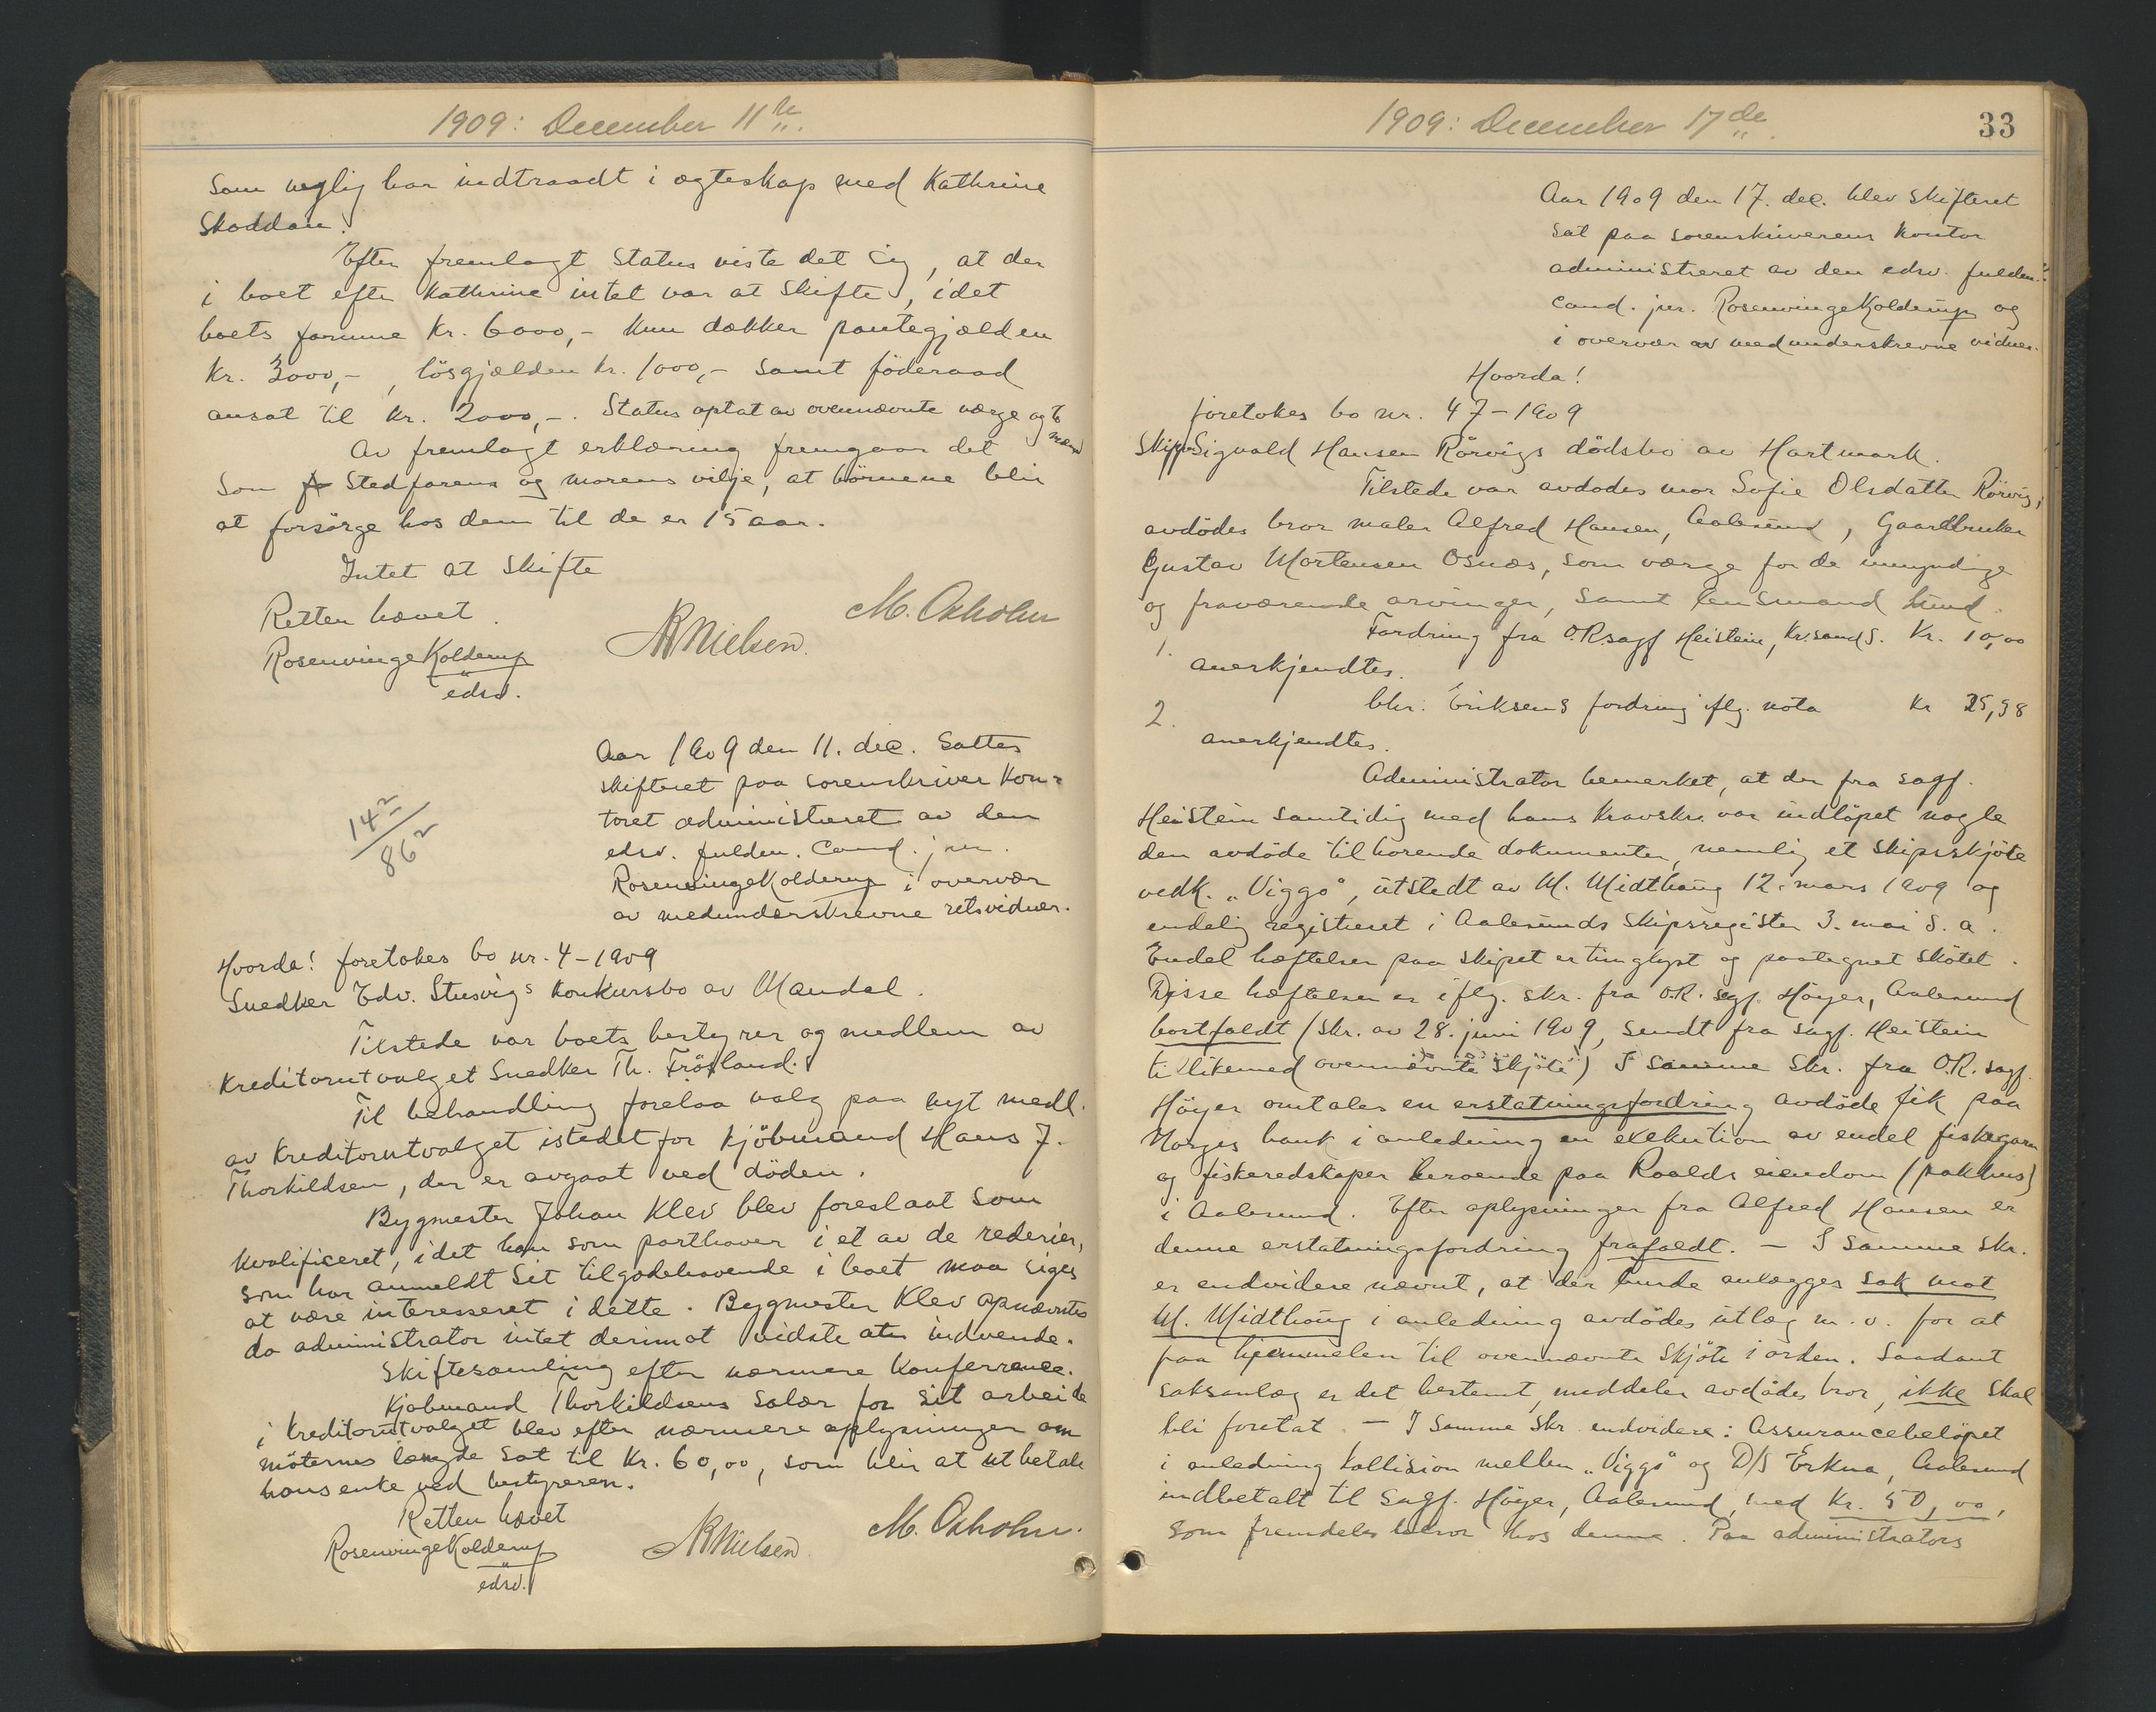 1909: December 11te
som nylig har indtraadt i ægteskap med Kathrine
Skoddan.
Efter fremlagt Status viste det sig, at der
i boet efter Kathrine intet var at skifte, idet
boets formue Kr. 6000,- kun dækker pantegjælden
Kr. 3000,-, lösgjælden Kr. 1000,- samt föderaad
ansat til Kr. 2000,-. Status optat av ovennævnte værge og to
mænd
Av fremlagt erklæring fremgaar det
som Stedfarens og morens vilje, at börnene blir
at forsörge hos dem til de er 15 aar.
Intet at skifte
Retten hævet.
Rosenvinge Kolderup
edsv.
N Nielsen.
M. Oxholm
14²/86²
Aar 1909 den 11. dec. sattes
skifteret paa sorenskriver kon-
toret administreret av den
edsv. fuldm. cand. jur.
Rosenvinge Kolderup i overvær
av medunderskrevne retsvidner.
Hvorda! foretokes bo nr. 4-1909
Snedker Edv. Stusvigs konkursbo av Mandal.
Tilstede var boets bestyrer og medlem av
Kreditorutvalget Snedker Th. Frösland.
Til behandling forelaa valg paa nyt medl.
av Kreditorutvalget istedetfor kjöbmand Hans J.
Thorkildsen, der er avgaat ved döden.
Bygmester Johan Klev blev foreslaat som
kvalificeret, idet han som parthaver i et av de rederier,
som har anmeldt sit tilgodehavende i boet maa siges
at være interesseret i dette. Bygmester Klev opnævntes
da administrator intet derimot vidste at indvende.
Skiftesamling efter nærmere konferrence.
Kjöbmand Thorkildsens salær for sit arbeide
i Kreditorutvalget blev efter nærmere oplysninger om
möternes længde sat til Kr. 60,00, som blir at utbetale
hans enke ved bestyreren.
Retten hævet
Rosenvinge Kolderup
edsv.
N Nielsen
M. Oxholm.
1909: December 17de
33
Aar 1909 den 17. dec. blev skifteret
sat paa sorenskriverens kontor
administreret av den edsv. fuldm.
cand. jur. Rosenvinge Kolderup og
i overvær av medunderskrevne vidner.
Hvorda!
foretokes bo nr. 47-1909
Skipp. Sigvald Hansen Rörvigs dödsbo av Hartmark.
Tilstede var avdodes mor Sofie Olsdatter Rörvig,
avdödes bror maler Alfred Hansen, Aalesund, Gaardbruker
Gustav Mortensen Osnes, som værge for de umyndige
og fraværende arvinger, samt lensmand Lund.
1. Fordring fra O.R.sagf Heistein, Kr.sand S. Kr. 10,00
anerkjendtes.
2. Chr. Eriksens fordring iflg. nota Kr 25,98
anerkjendtes.
Administrator bemerket, at der fra sagf.
Heistein samtidig med hans kravskr. var indlöpet nogle
den avdöde tilhorende dokumenter, nemlig et skipsskjöte
vedk. „Viggo", utstedt av M. Midthaug 12. mars 1909 og
endelig registreret i Aalesunds skipsregister 3. mai s. a.
Endel hæftelser paa skipet er tinglyst og paategnet skötet.
Disse hæftelser er iflg. skr. fra O.R. sagf. Höyer, Aalesund
bortfaldt (skr. av 28. juni 1909, sendt fra sagf. Heistein
tillikemed ovennævnte skjöte) I samme skr. fra O.R. sagf.
Höyer omtales en erstatningsfordring avdöde fik paa
Norges bank i anledning en exekution av endel fiskegarn
og fiskeredskaper beroende paa Roalds eiendom (pakhus)
i Aalesund. Efter oplysninger fra Alfred Hansen er
denne erstatningsfordring frafaldt. — I samme skr.
er endvidere nævnt, at der burde anlægges sak mot
M. Midthaug i anledning avdödes utlæg m. v. for at
faa hjemmelen til ovennævnte skjöte i orden. Saadant
saksanlæg er det bestemt, meddeler avdödes bror, ikke skal
bli foretat. — I samme skr endvidere: Assurancebelöpet
i anledning kollision mellem „Viggo" og D/S Erkna, Aalesund
indbetalt til sagf. Höyer, Aalesund, med Kr. 50,00,
som fremdeles beror hos denne. Paa administrators